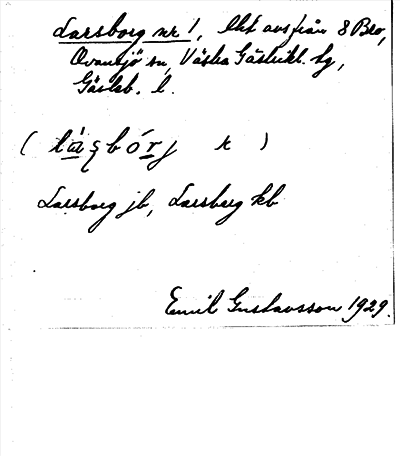 Larsborg nr 1, lht avs från 8 Bro,
Ovansjö sn, Västra Gästrikl. tg,
Gävleb. l.
( lásbórj r )
Larsborg jb, Larsberg kb
Emil Gustavsson 1929.